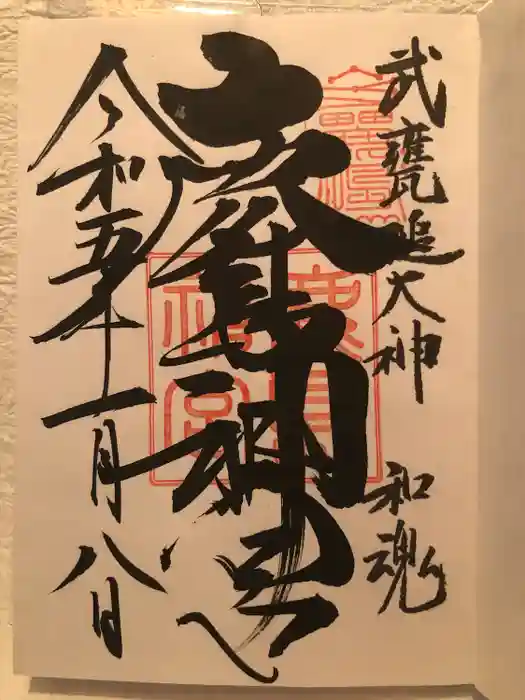 武甕槌大神　和魂
鹿島神宮
鹿島
神宮
令和五年十一月八日